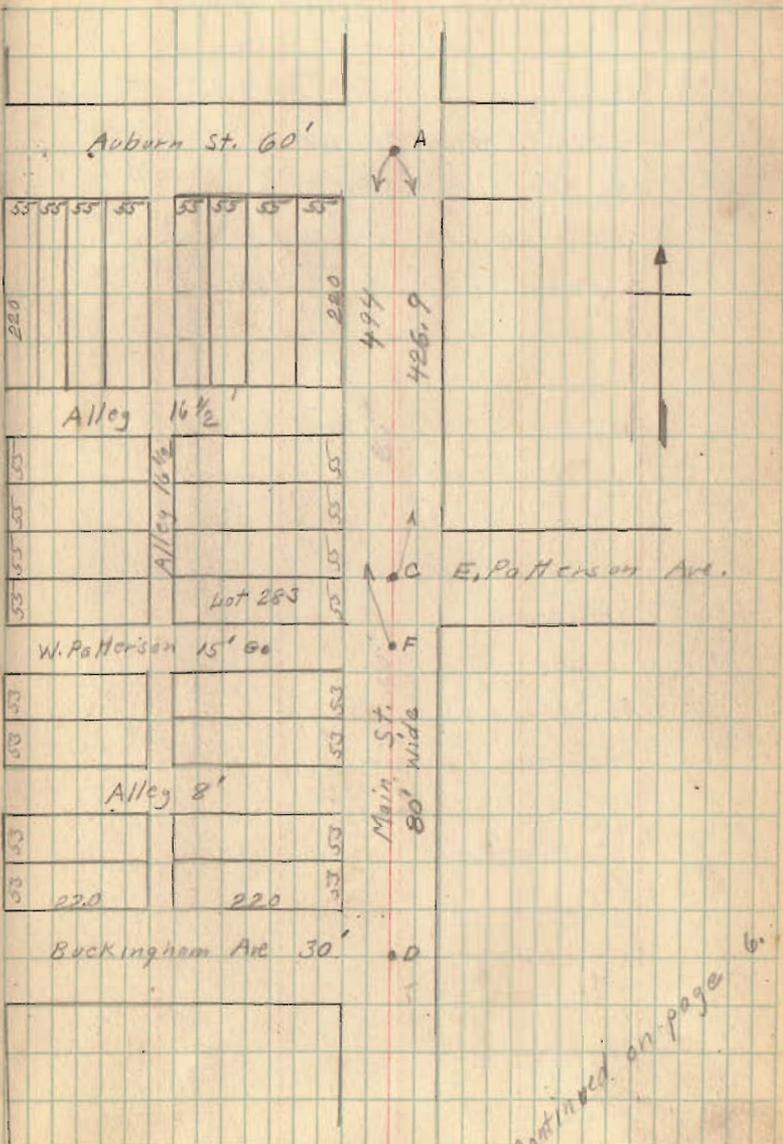 Auburn St. 60'
A
55 55 55 55 55 55 55 55
220
220
494
426.9
Alley 16 1/2'
Alley 16 1/2
55
55
55
55
55
55
55
55
Lot 283
C
E. Patterson Ave.
W. Patterson 15'
F
53
53
53
53
Main St.
80' Wide
Alley 8'
53
53
53
53
220
220
Buckingham Ave 30'
D
continued on page 6.